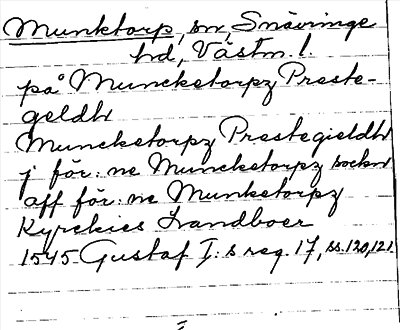 Munktorp, sn, Snävringe
hd, Västm. l.
på Muncketorpz Preste-
geldh
Muncketorpz Prestegieldh
j för: ne Muncketorpz sockn
aff för: ne Munketorpz
Kyrckies Landboer
1545 Gustaf I: s reg. 17, ss. 120, 121.